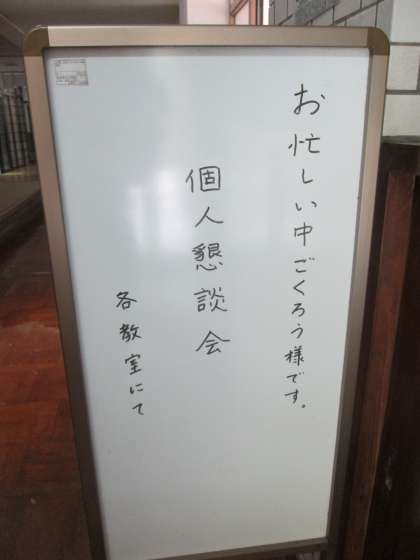 お忙しい中ごくろう様です。
個人懇談会
各教室にて